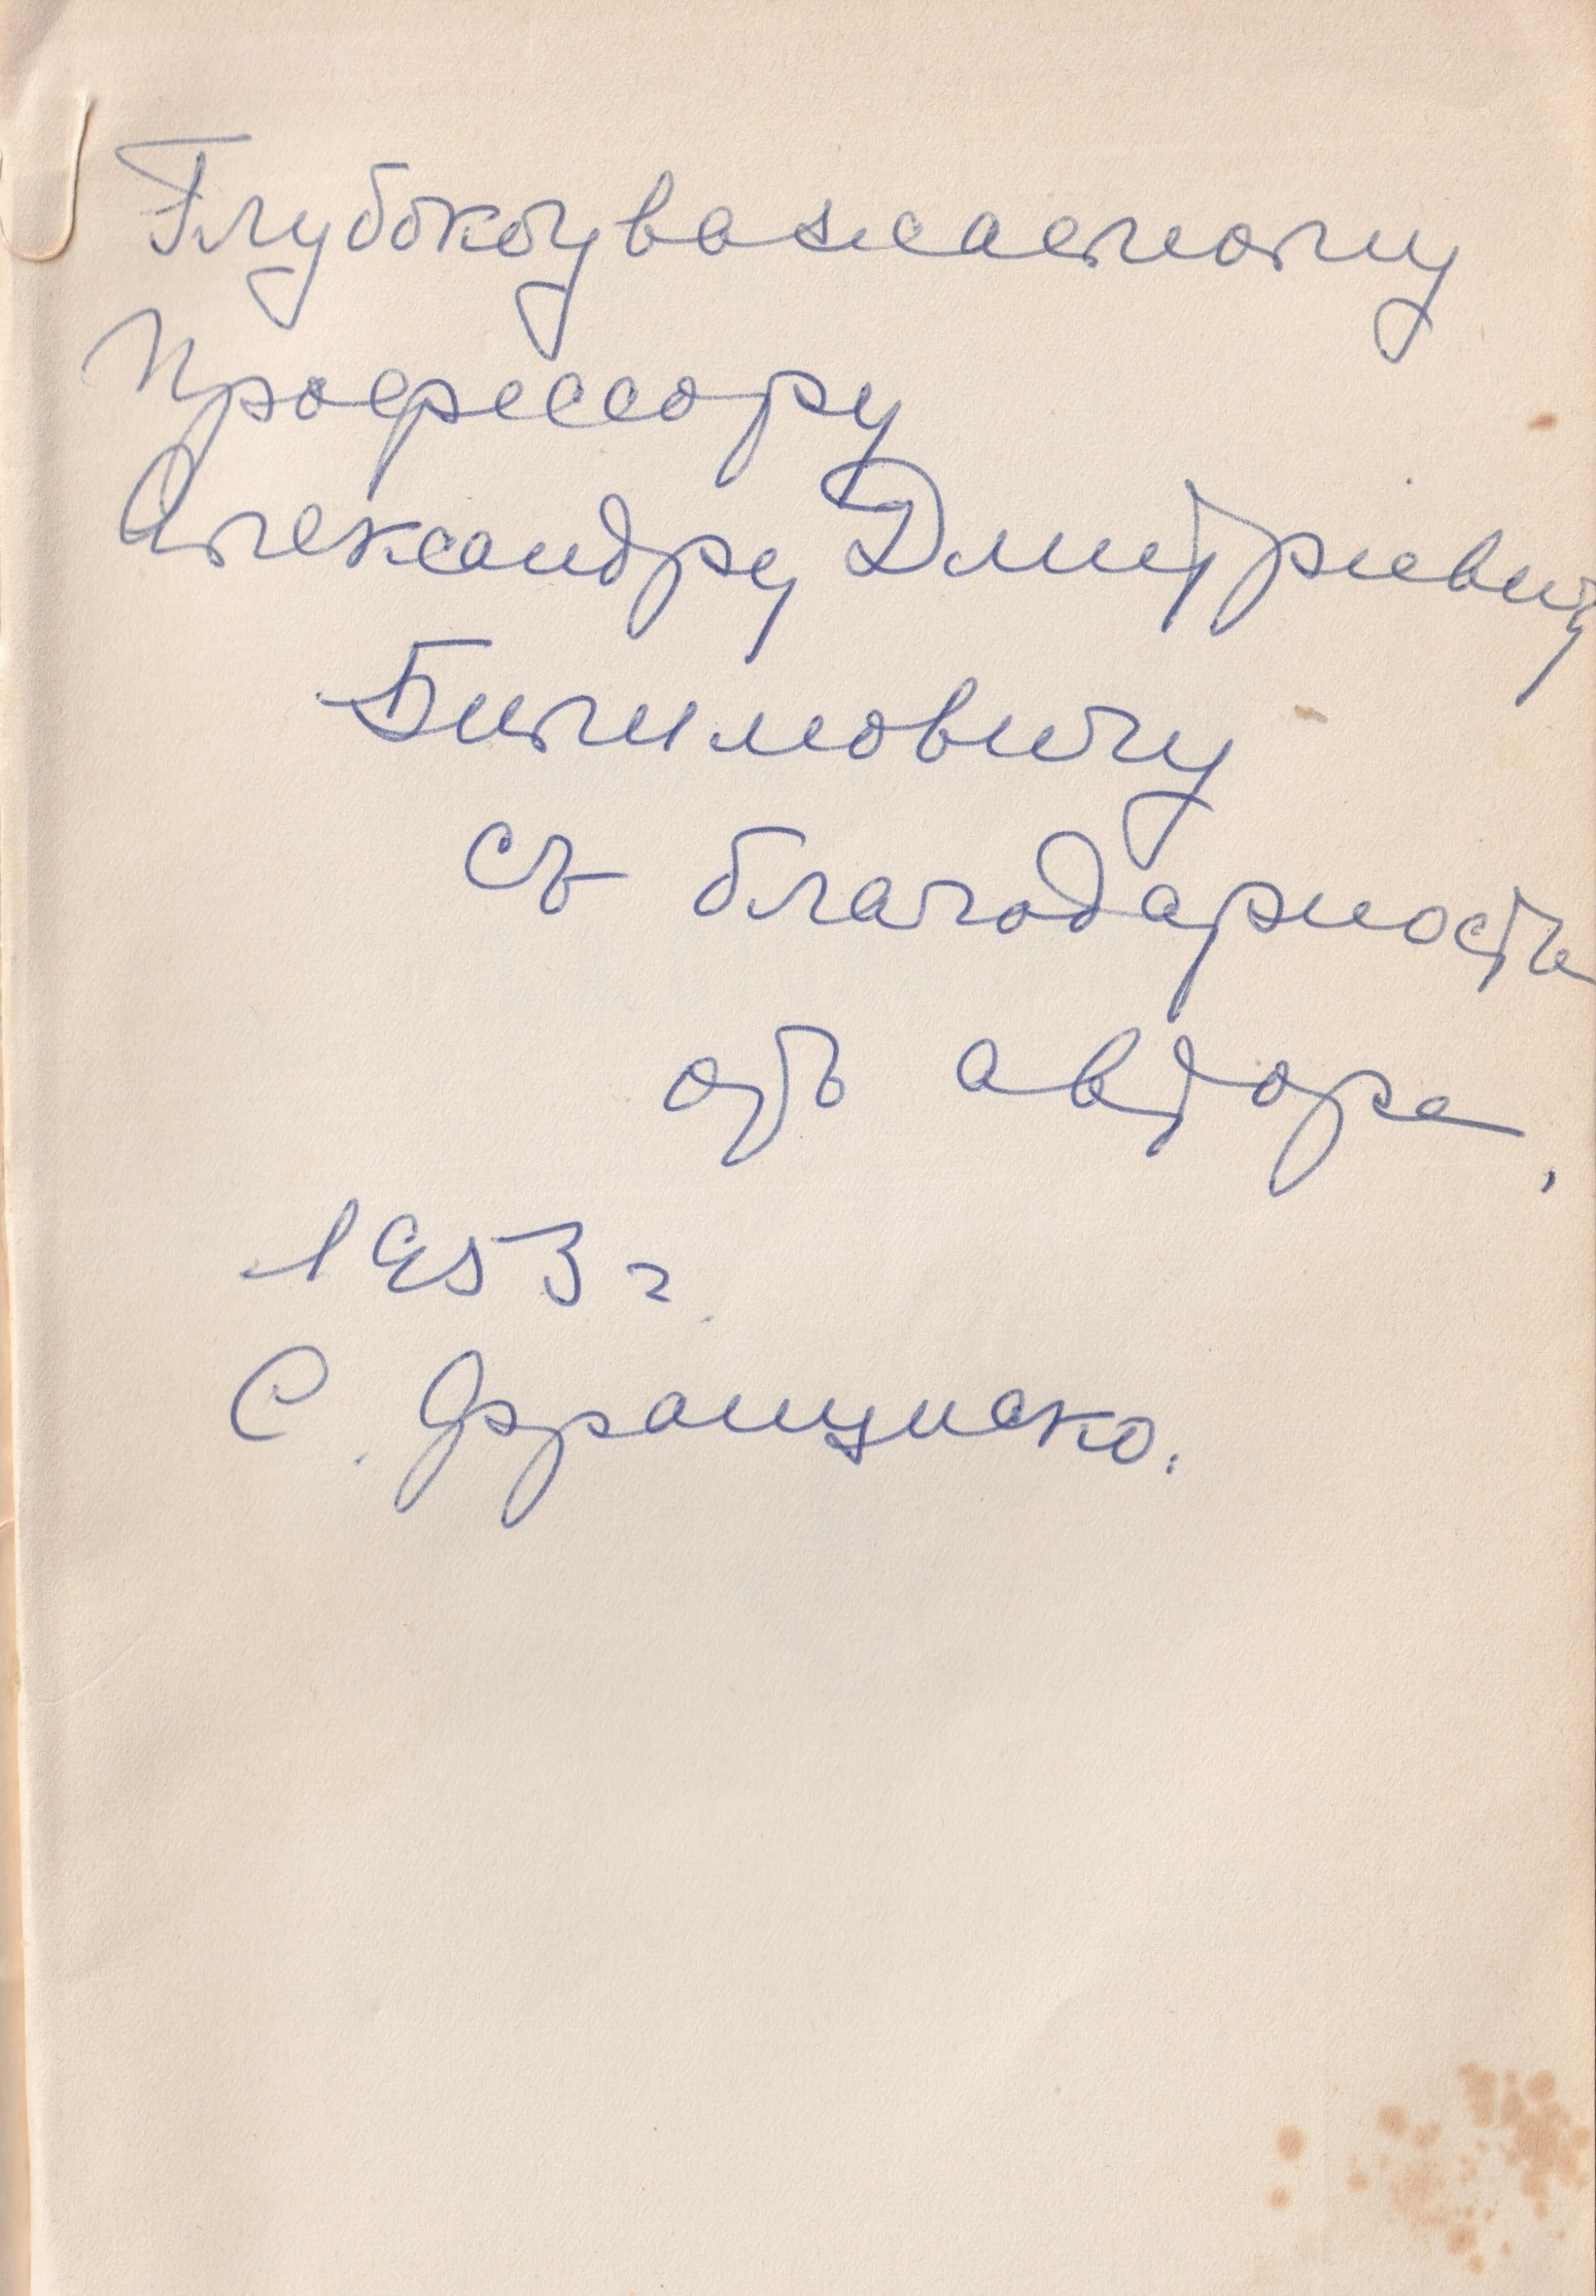 Глубокоуважаемому
Профессору
Александру Дмитріевичу
Билимовичу
съ благодарность
отъ автора.
1953 г.
С. Франциско.